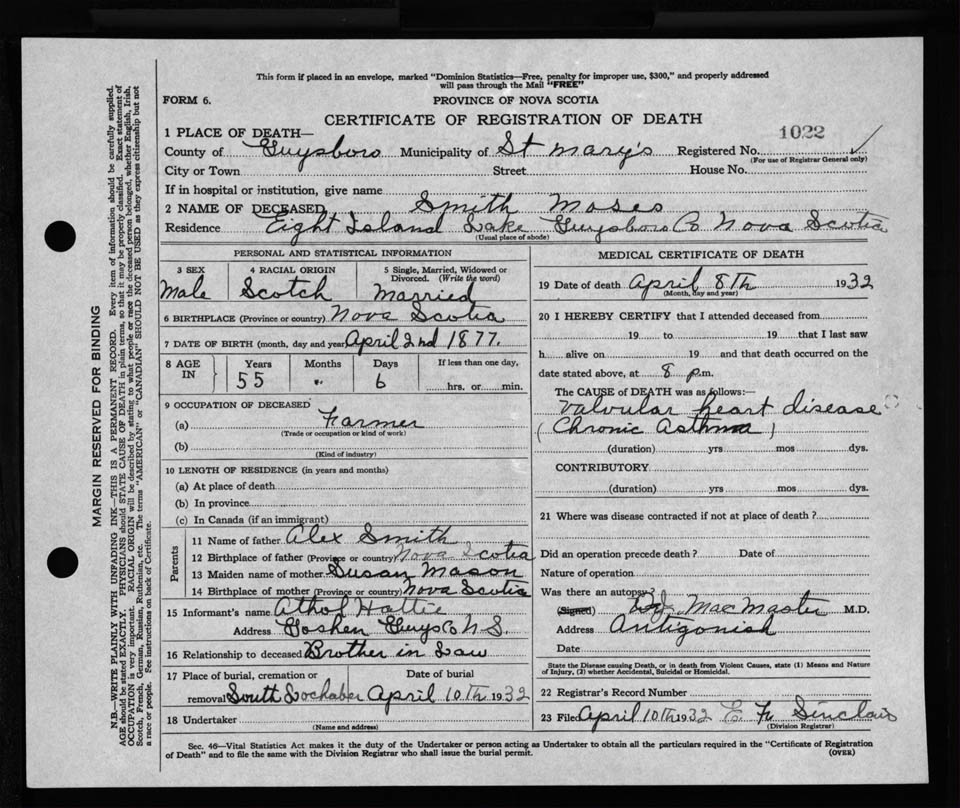 This form if placed in an envelope, marked "Dominion Statistics—Free, penalty for improper use, $300," and properly addressed
will pass through the Mail "FREE"
FORM 6.
PROVINCE OF NOVA SCOTIA
CERTIFICATE OF REGISTRATION OF DEATH
1022
1 PLACE OF DEATH—
County of Guysboro Municipality of St Mary's Registered No.
(For use of Registrar General only)
City or Town Street House No.
If in hospital or institution, give name
2 NAME OF DECEASED Smith Moses
Residence Eight Island Lake Guysboro Co Nova Scotia
(Usual place of abode)
PERSONAL AND STATISTICAL INFORMATION
3 SEX 4 RACIAL ORIGIN 5 Single, Married, Widowed or
Divorced. (Write the word)
Male Scotch Married
6 BIRTHPLACE (Province or country) Nova Scotia
7 DATE OF BIRTH (month, day and year) April 2nd 1877.
8 AGE IN Years Months Days If less than one day,
55 6 hrs. or min.
9 OCCUPATION OF DECEASED
(a) Farmer
(Trade or occupation or kind of work)
(b)
(Kind of industry)
10 LENGTH OF RESIDENCE (in years and months)
(a) At place of death
(b) In province
(c) In Canada (if an immigrant)
Parents
11 Name of father Alex Smith
12 Birthplace of father (Province or country) Nova Scotia
13 Maiden name of mother Susan Mason
14 Birthplace of mother (Province or country) Nova Scotia
15 Informant's name Athol Hattie
Address Goshen Guys Co N.S.
16 Relationship to deceased Brother in Law
17 Place of burial, cremation or Date of burial
removal South Lochaber April 10Th 1932
18 Undertaker
(Name and address)
MEDICAL CERTIFICATE OF DEATH
19 Date of death April 8Th 1932
(Month, day and year)
20 I HEREBY CERTIFY that I attended deceased from
19 to 19 that I last saw
h alive on 19 and that death occurred on the
date stated above, at 8 p.m.
The CAUSE of DEATH was as follows:
Valvular heart disease
(Chronic Asthma)
(duration) yrs mos dys.
CONTRIBUTORY
(duration) yrs mos dys.
21 Where was disease contracted if not at place of death?
Did an operation precede death? Date of
Nature of operation
Was there an autopsy?
(Signed) MacMaster M.D.
Address Antigonish
Date
State the Disease causing Death, or in death from Violent Causes, state (1) Means and Nature
of Injury, (2) whether Accidental, Suicidal or Homicidal.
22 Registrar's Record Number
23 Filed April 10Th 1932 Sinclair
(Division Registrar)
Sec. 46—Vital Statistics Act makes it the duty of the Undertaker or person acting as Undertaker to obtain all the particulars required in the "Certificate of Registration
of Death" and to file the same with the Division Registrar who shall issue the burial permit. (OVER)
MARGIN RESERVED FOR BINDING
N.B.—WRITE PLAINLY WITH UNFADING INK—THIS IS A PERMANENT RECORD. Every item of information should be carefully supplied.
AGE should be stated EXACTLY. PHYSICIANS should STATE CAUSE OF DEATH in plain terms, so that it may be properly classified. Exact statement of
OCCUPATION is very important. RACIAL ORIGIN will be described by stating to what people or race the deceased person belonged, whether English, Irish,
Scotch, French, German, Russian, Ruthenian, etc. The terms "AMERICAN" or "CANADIAN" SHOULD NOT BE USED as they express citizenship but not
a race or people. See instructions on back of Certificate.